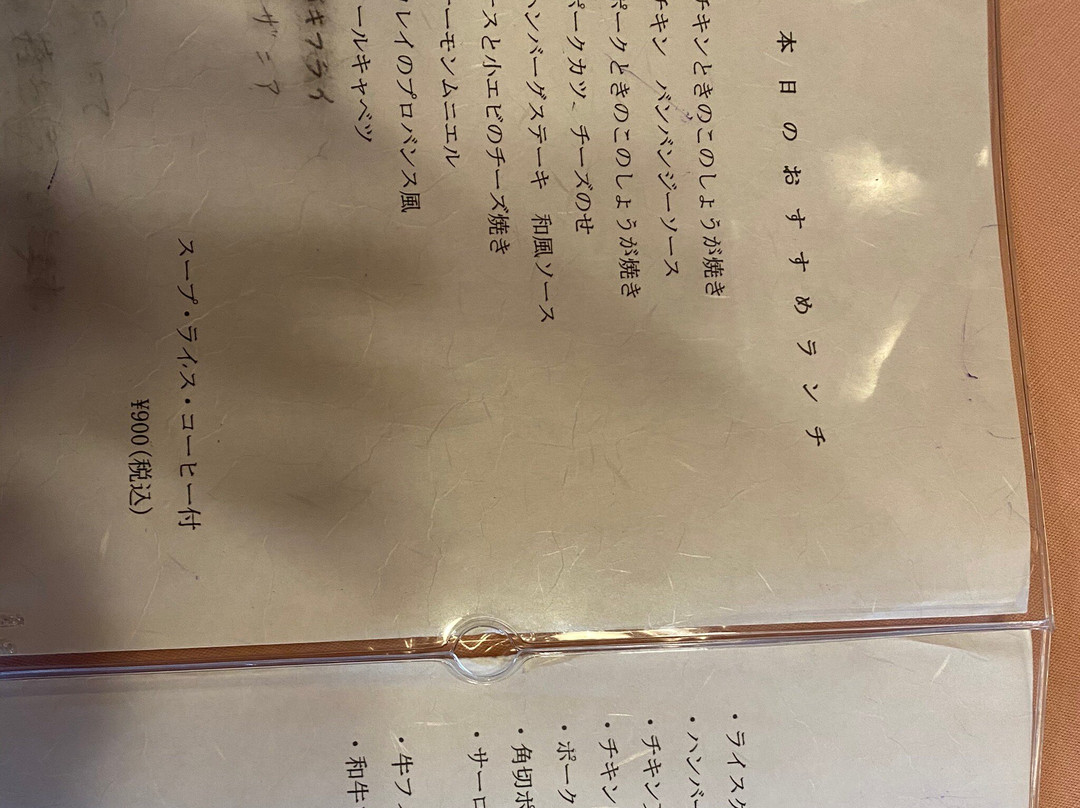 本日のおすすめランチ
チキンときのこのしょうが焼き
チキン バンバンジーソース
ポークときのこのしょうが焼き
ポークカツ、チーズのせ
ハンバーグステーキ 和風ソース
スと小エビのチーズ焼き
ーモンムニエル
レイのプロバンス風
ールキャベツ
キフライ
ザニア
スープ・ライス・コーヒー付
¥900(税込)
・ライス
・ハンバー
・チキン
・チキン
・ポーク
・角切
・サーロ
・牛フ
・和牛